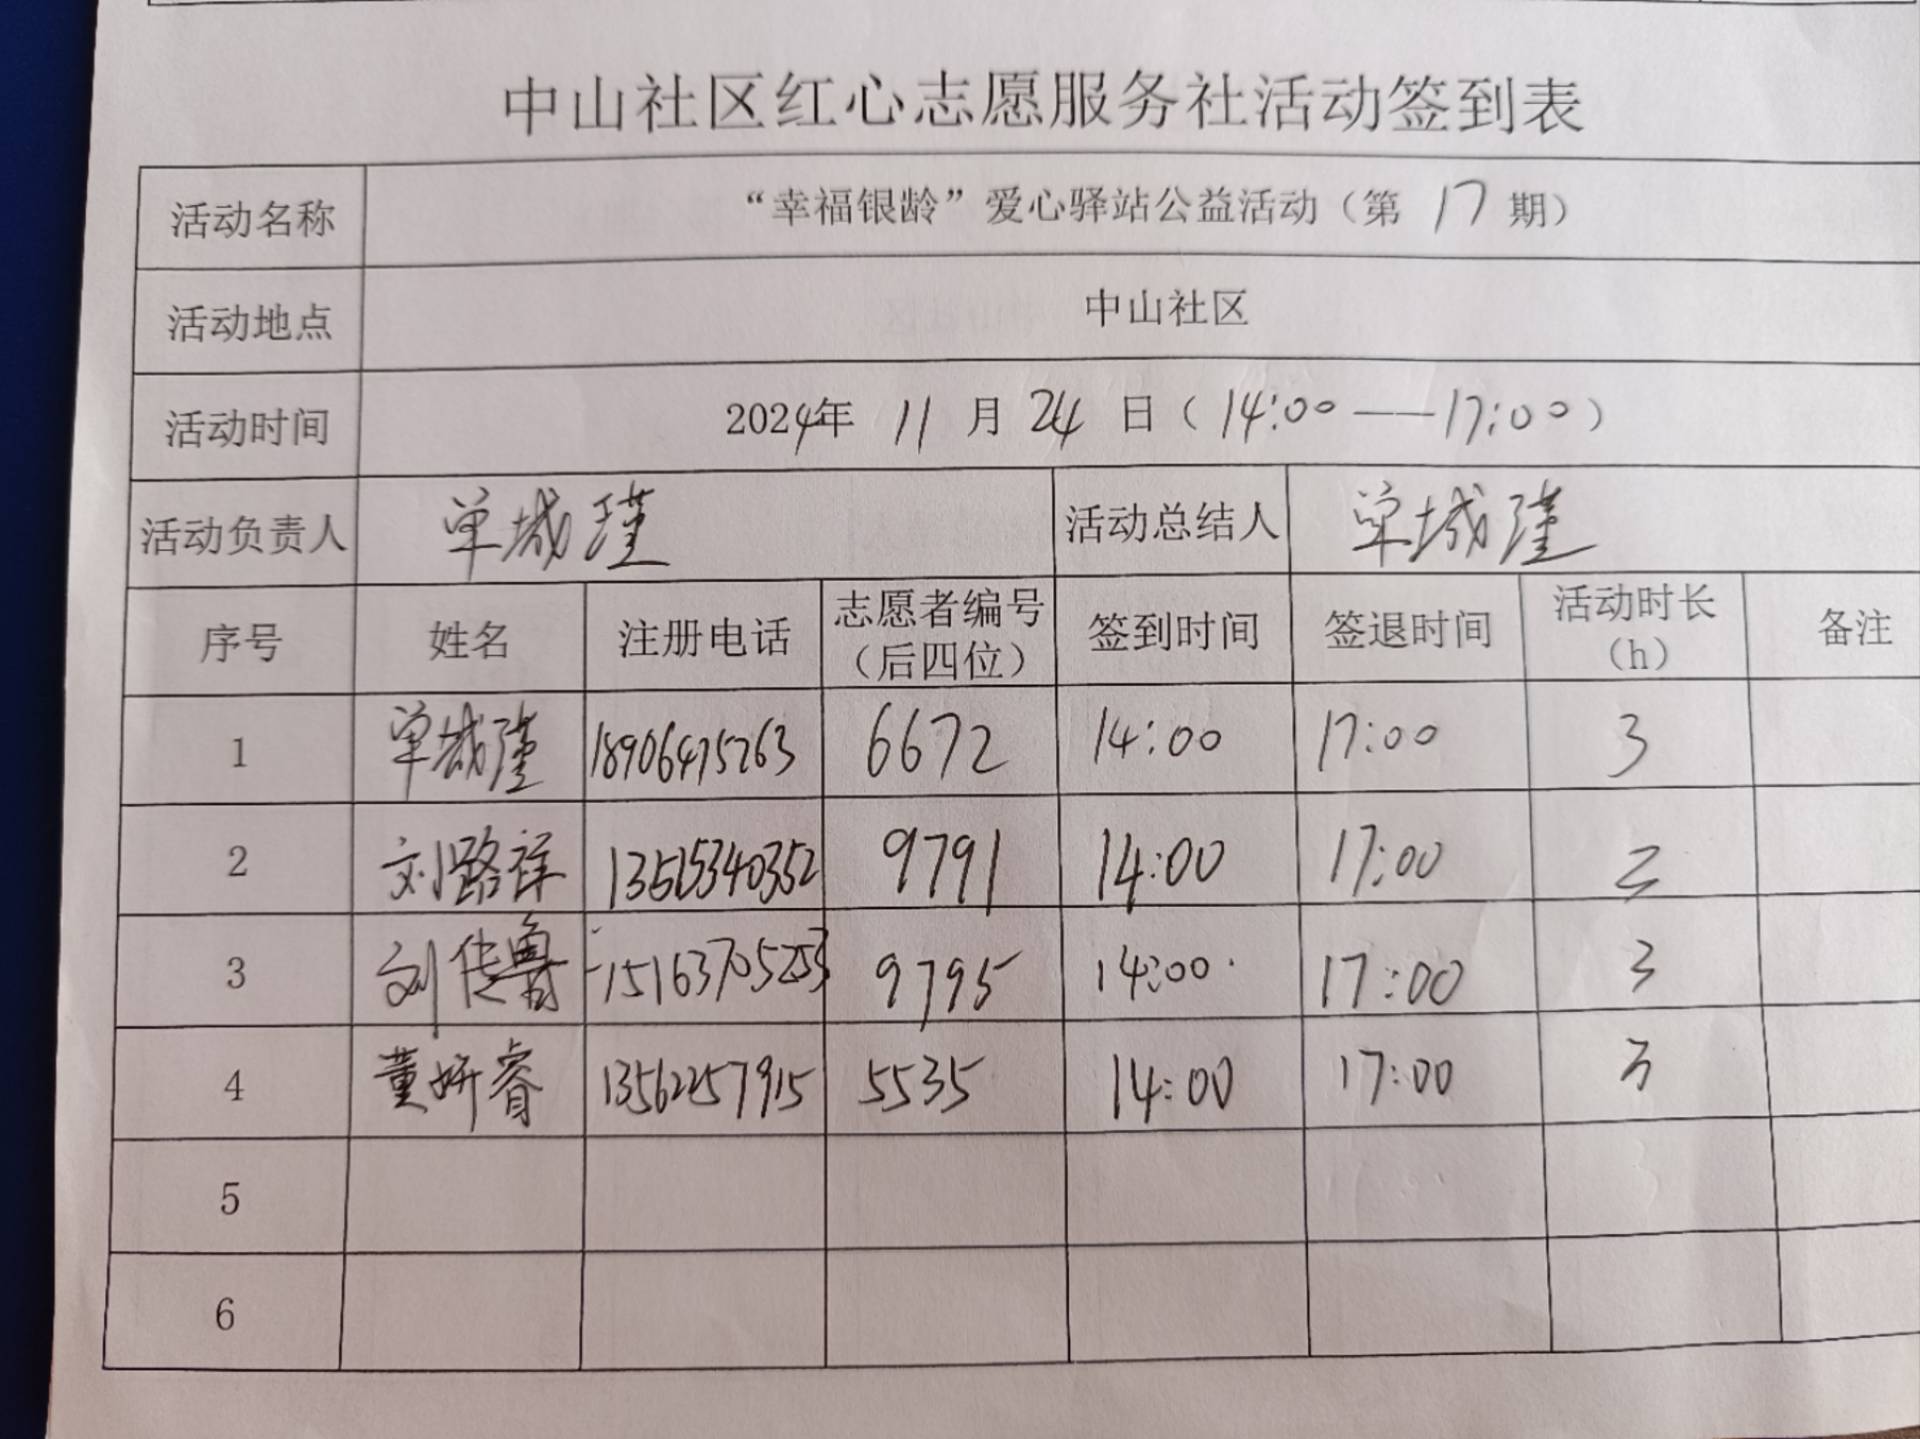 中山社区红心志愿服务社活动签到表
活动名称 “幸福银龄”爱心驿站公益活动（第 17 期）
活动地点 中山社区
活动时间 2024年 11 月 24 日（14:00——17:00）
活动负责人 单城瑾 活动总结人 单城瑾
序号 姓名 注册电话 志愿者编号（后四位） 签到时间 签退时间 活动时长（h） 备注
1 单城瑾 18906475263 6672 14:00 17:00 3
2 刘路祥 13515340352 9791 14:00 17:00 3
3 刘传鲁 15163705253 9795 14:00 17:00 3
4 董妍睿 13562257915 5535 14:00 17:00 3
5
6